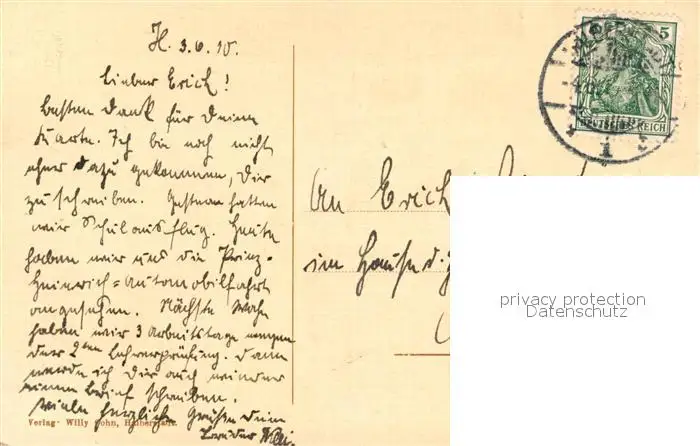 H. 3.6.10.
Lieber Erich!
Besten Dank für Deine
Karte. Ich bin noch nicht
eher dazu gekommen, Dir
zu schreiben. Gestern hatten
wir Schulausflug. Heute
haben wir uns die Prinz-
Heinrich-Automobilfahrt
angesehen. Nächste Woche
haben wir 3 Arbeitstage wegen
der 2ten Lehrerprüfung. Dann
werde ich Dir auch wieder
einen Brief schreiben.
Viele herzliche Grüße Dein
Bruder
Verlag: Willy Sohn, Halberstadt.
5
DEUTSCHES REICH
An Erich
im Hause d.
privacy protection
Datenschutz